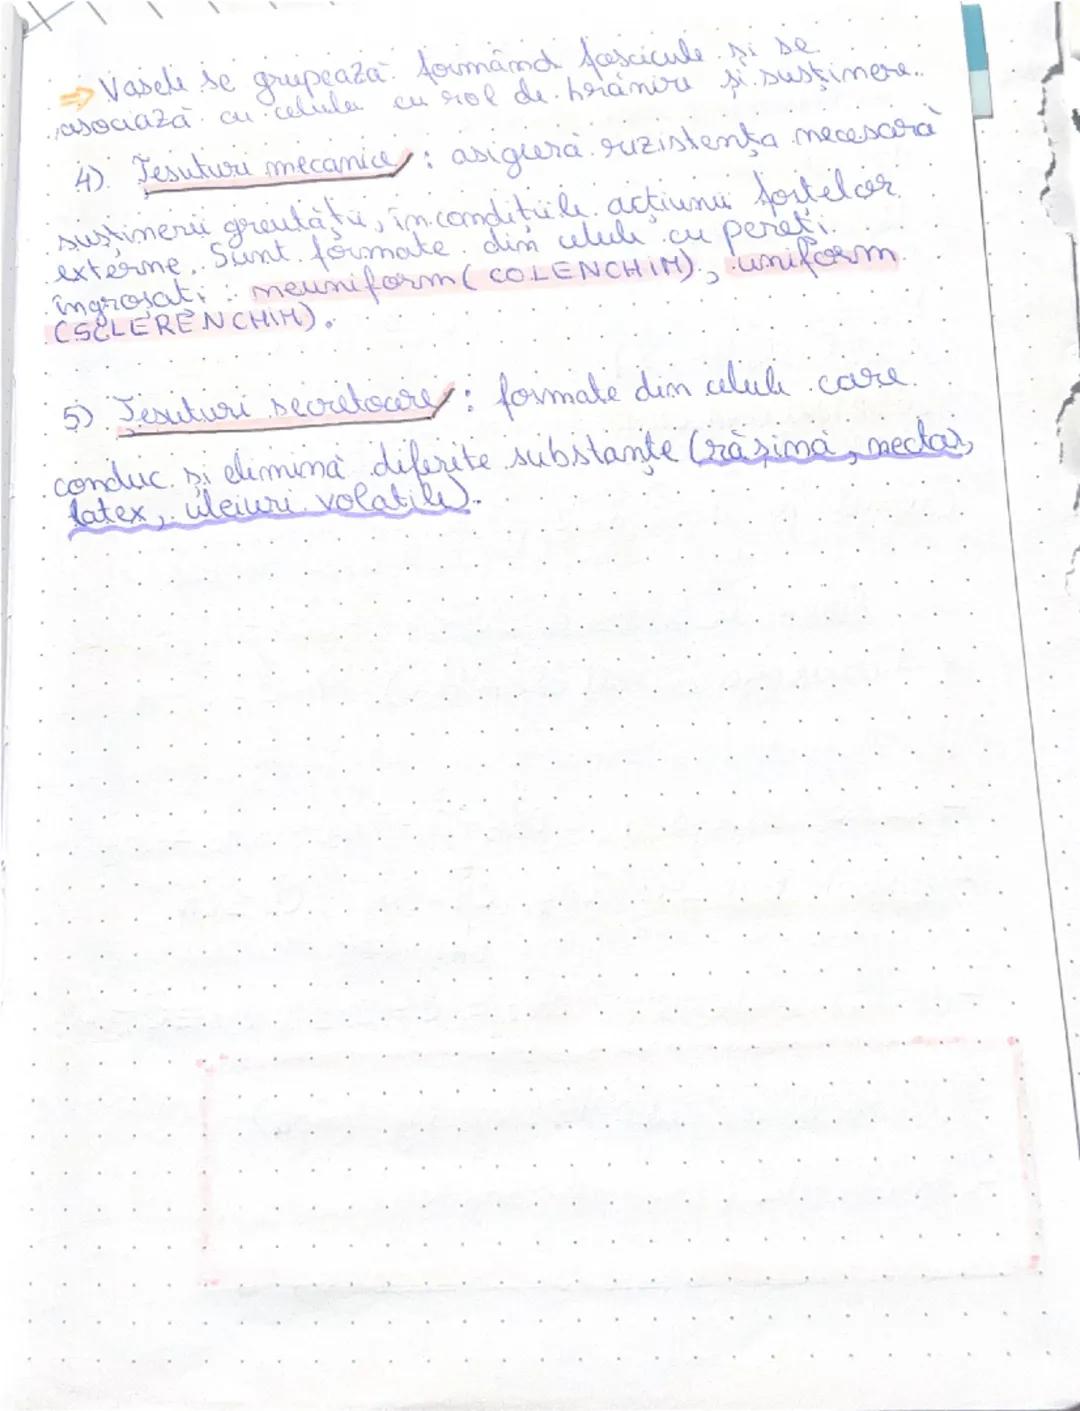 ⇒ Vasele se grupează formând fascicule și se
asociază cu celule cu rol de hrănire și susținere.
4) Țesuturi mecanice : asigură rezistența necesară
susținerii greutății, în condițiile acțiunii forțelor
externe. Sunt formate din celule cu pereți
îngroșați : neuniform (COLENCHIM), uniform
(SCLERENCHIM).
5) Țesuturi secretoare : formate din celule care
conduc și elimină diferite substanțe (rășină, nectar,
latex, uleiuri volatile).